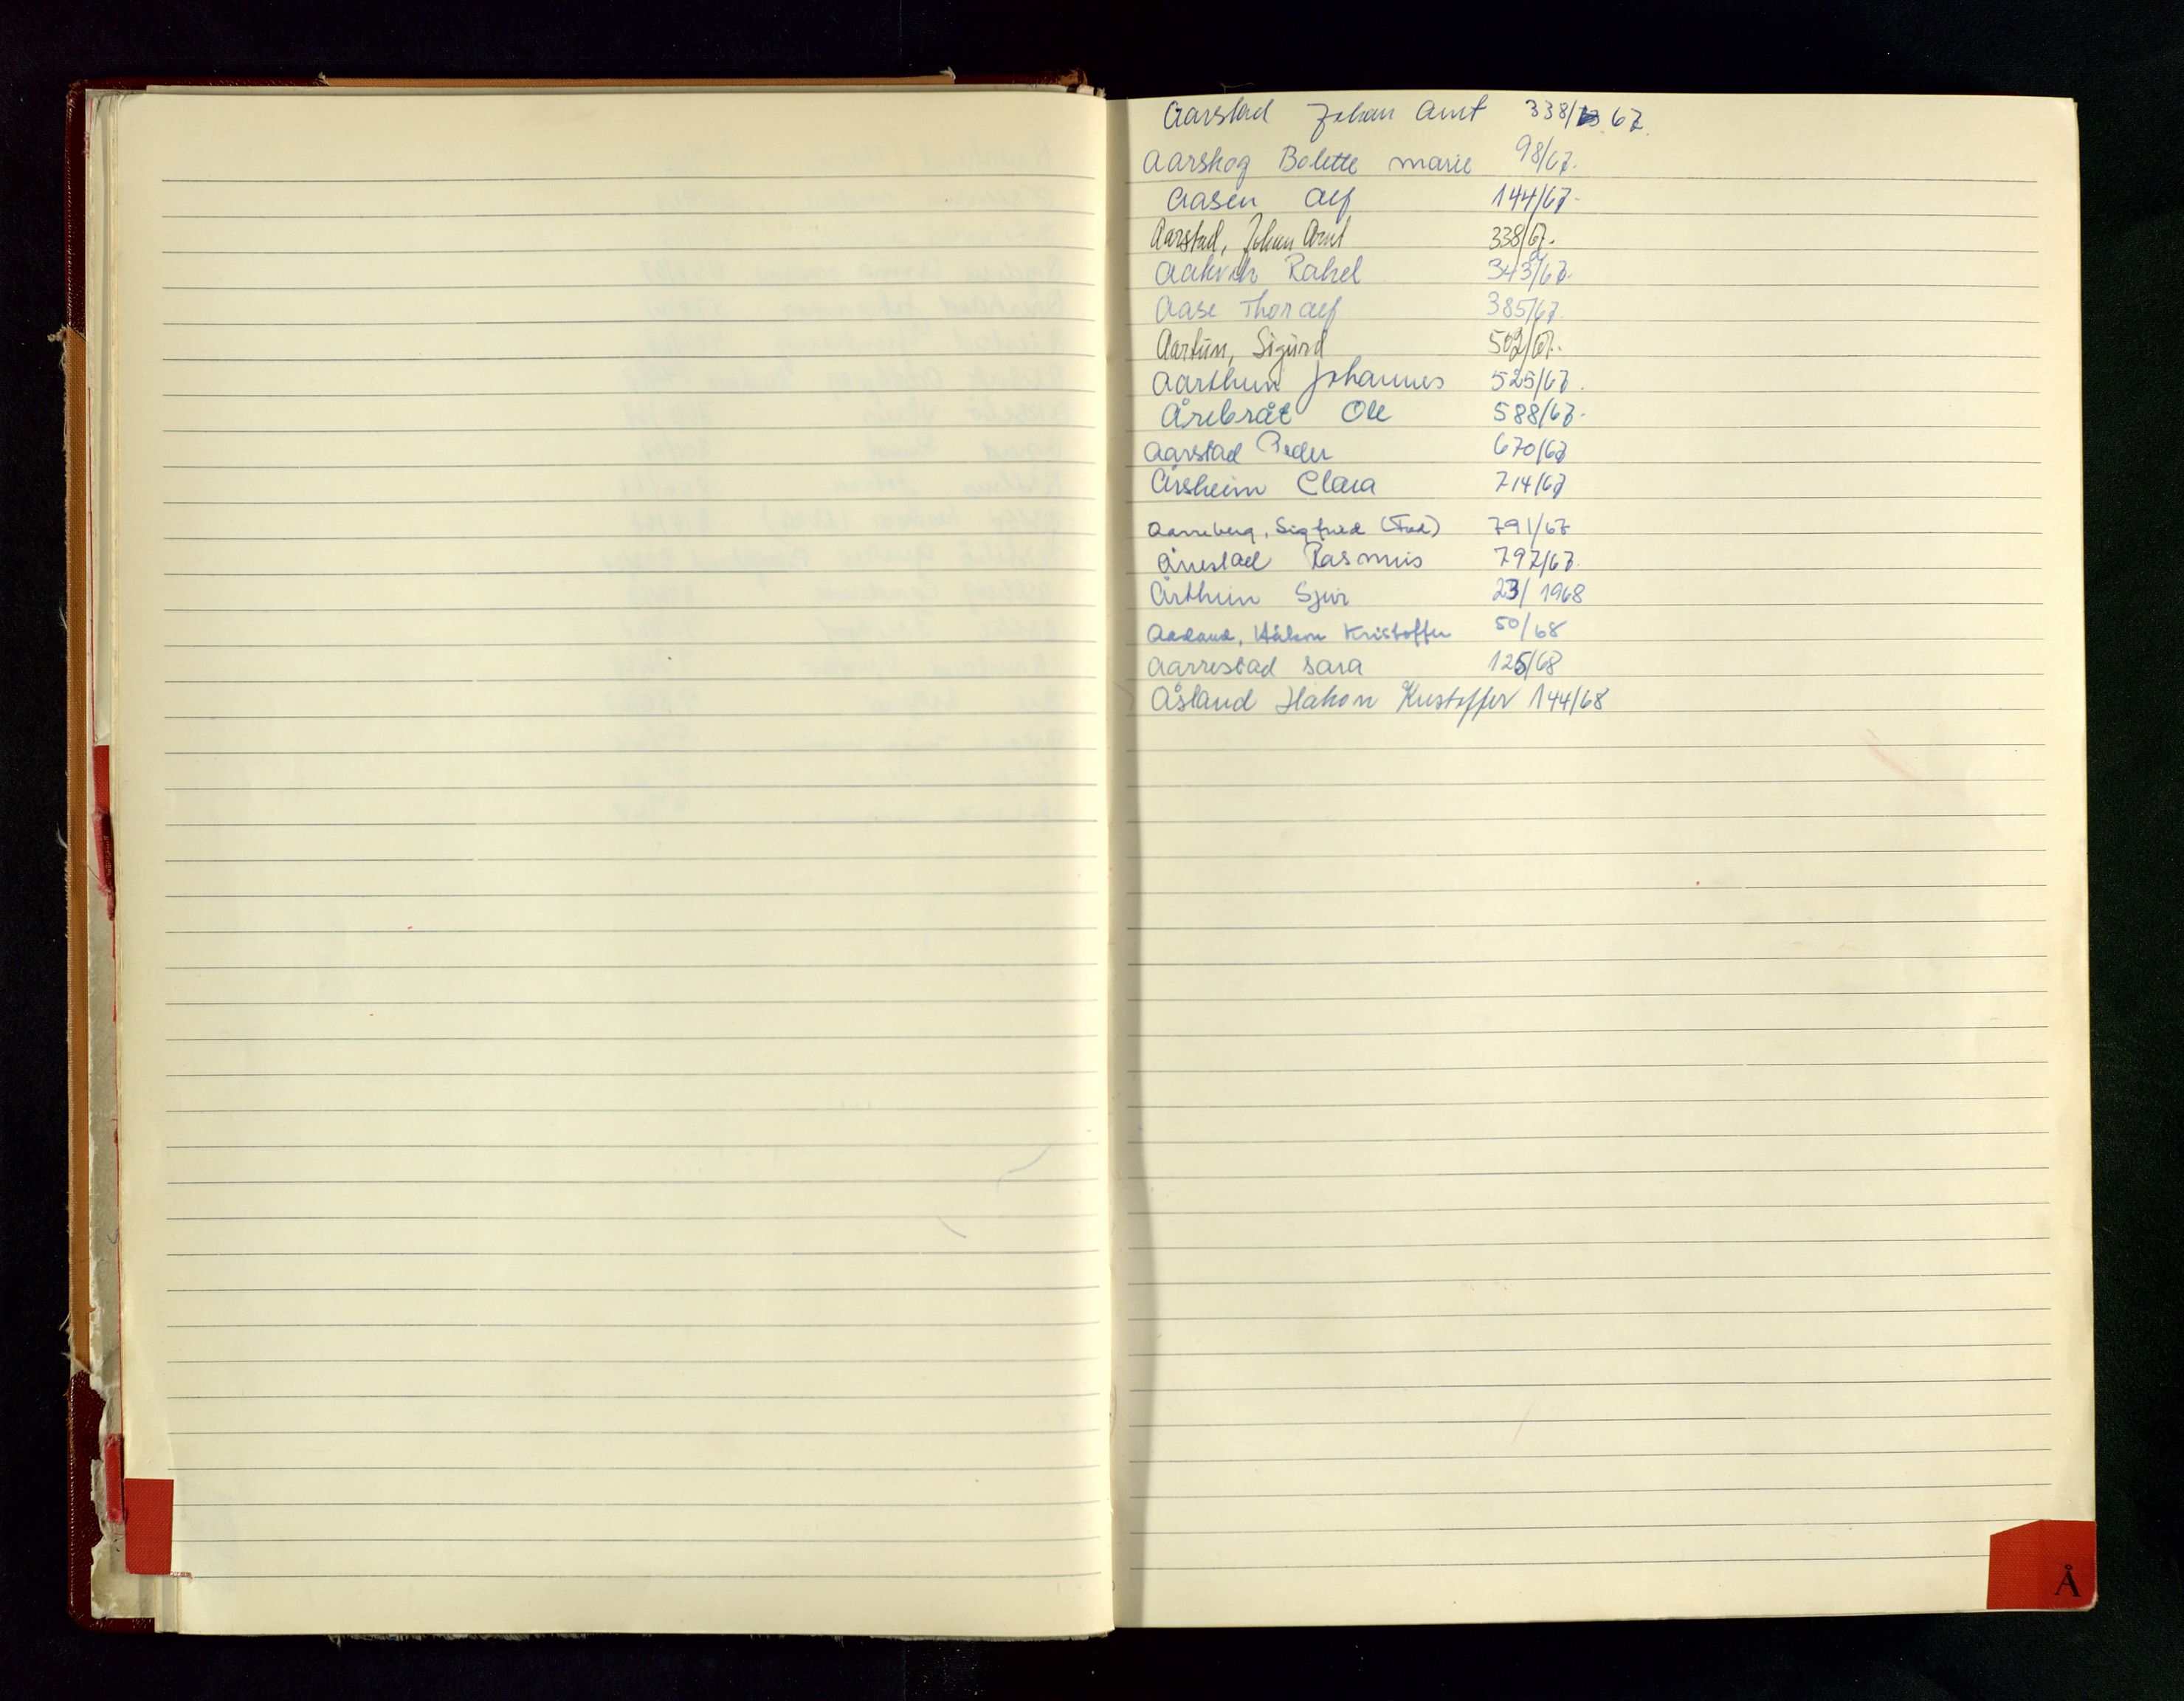 Aarstad Johan Arnt 338/67
Aarskog Bolette Marie 98/67.
Aasen Alf 144/67.
Aarstad, Johan Arnt 338/67.
Aakvik Rakel 343/67.
Aase Thoralf 385/67.
Aartun, Sigurd 502/67.
Aarthun Johannes 525/67.
Årebråt Ole 588/67.
Aarstad Peder 670/67
Årsheim Clara 714/67
Aarreberg, Sigfried 791/67
Årrestad Rasmus 797/67.
Årthun Sjur 23/1968
Aasland, Håkon Kristoffer 50/68
Aarrestad Sara 125/68
Åsland Håkon Kristoffer 144/68
Å